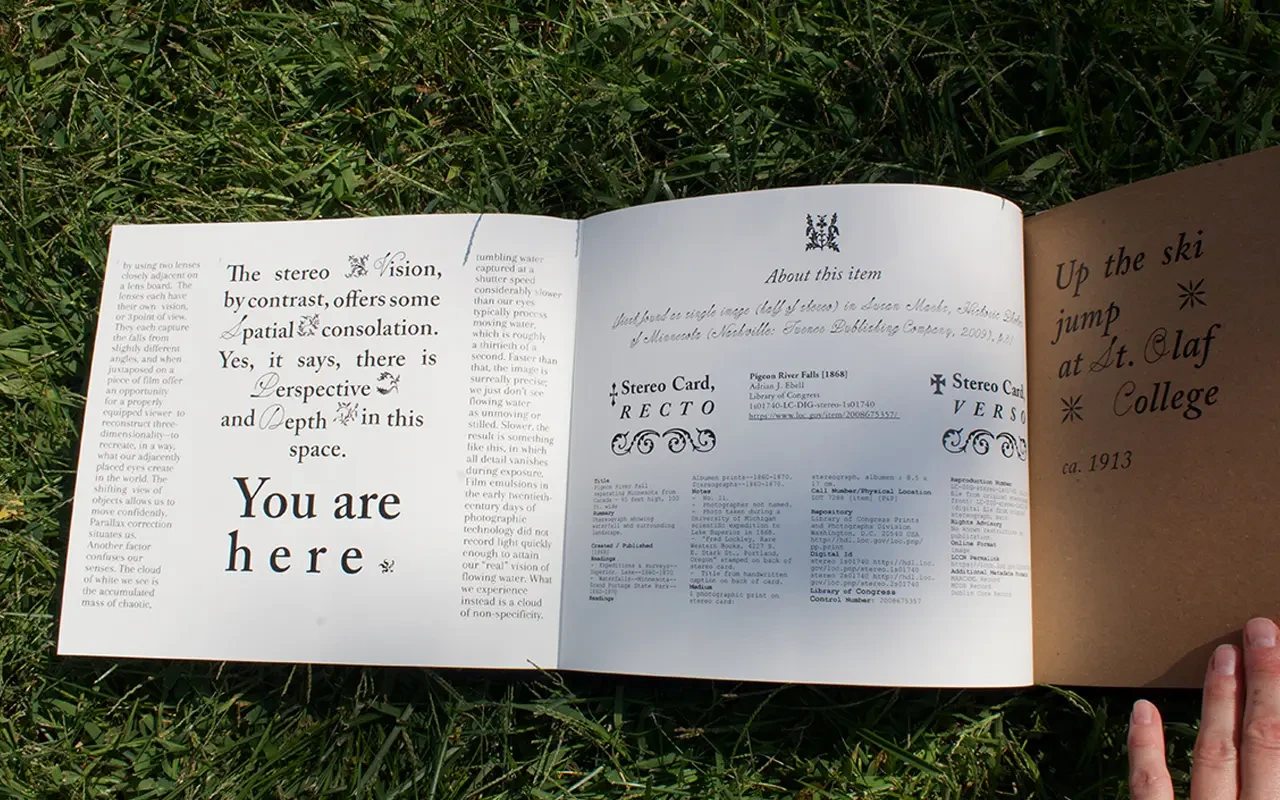 by using two lenses
closely adjacent on
a lens board. The
lenses each have
their own vision,
or 3point of view.
They each capture
the falls from
slightly different
angles, and when
juxtaposed on a
piece of film offer
an opportunity
for a properly
equipped viewer to
reconstruct three-
dimensionality--to
recreate, in a way,
what our adjacently
placed eyes create
in the world. The
shifting view of
objects allows us to
move confidently.
Parallax correction
situates us.
Another factor
confuses our
senses. The cloud
of white we see is
the accumulated
mass of chaotic,
The stereo Vision,
by contrast, offers some
Spatial consolation.
Yes, it says, there is
Perspective
and Depth in this
space.
You are
here
tumbling water
captured at a
shutter speed
considerably slower
than our eyes
typically process
moving water,
which is roughly
a thirtieth of a
second. Faster than
that, the image is
surreally precise;
we just don't see
flowing water
as unmoving or
stilled. Slower, the
result is something
like this, in which
all detail vanishes
during exposure.
Film emulsions in
the early twentieth-
century days of
photographic
technology did not
record light quickly
enough to attain
our "real" vision of
flowing water. What
we experience
instead is a cloud
of non-specificity.
About this item
first found as single image (half of stereo) in Susan Marks, Historic
of Minnesota (Nashville: Turner Publishing Company, 2009), p.61
Stereo Card,
RECTO
Pigeon River Falls [1868]
Adrian J. Ebell
Library of Congress
1s01740-LC-DIG-stereo-1s01740
https://www.loc.gov/item/2008675357/
Stereo Card,
VERSO
Title
Pigeon River Fall
seperating Minnesota from
Canada - 90 feet high, 100
ft. wide
Summary
Stereograph showing
waterfall and surrounding
landscape.
Created / Published
[1868]
Headings
- Expeditions & surveys--
Superior, Lake--1860-1870
- Waterfalls--Minnesota--
Grand Portage State Park--
1860-1870
Headings
Albumen prints--1860-1870.
Stereographs--1860-1870.
Notes
- No. 11.
- Photographer not named.
- Photo taken during a
University of Michigan
scientific expedition to
Lake Superior in 1868.
- "Fred Lockley, Rare
Western Books, 4227 S.
E. Stark St., Portland,
Oregon" stamped on back of
stereo card.
- Title from handwritten
caption on back of card.
Medium
1 photographic print on
stereo card:
stereograph, albumen ; 8.5 x
17 cm.
Call Number/Physical Location
LOT 7286 [item] [P&P]
Repository
Library of Congress Prints
and Photographs Division
Washington, D.C. 20540 USA
http://hdl.loc.gov/loc.pnp/
pp.print
Digital Id
stereo 1s01740 http://hdl.loc.
gov/loc.pnp/stereo.1s01740
stereo 2s01740 http://hdl.loc.
gov/loc.pnp/stereo.2s01740
Library of Congress
Control Number: 2008675357
Reproduction Number
Rights Advisory
No known restrictions on
publication.
Online Format
image
LCCN Permalink
Additional Metadata Formats
MARCXML Record
MODS Record
Dublin Core Record
Up the ski
jump
at St. Olaf
College
ca. 1913